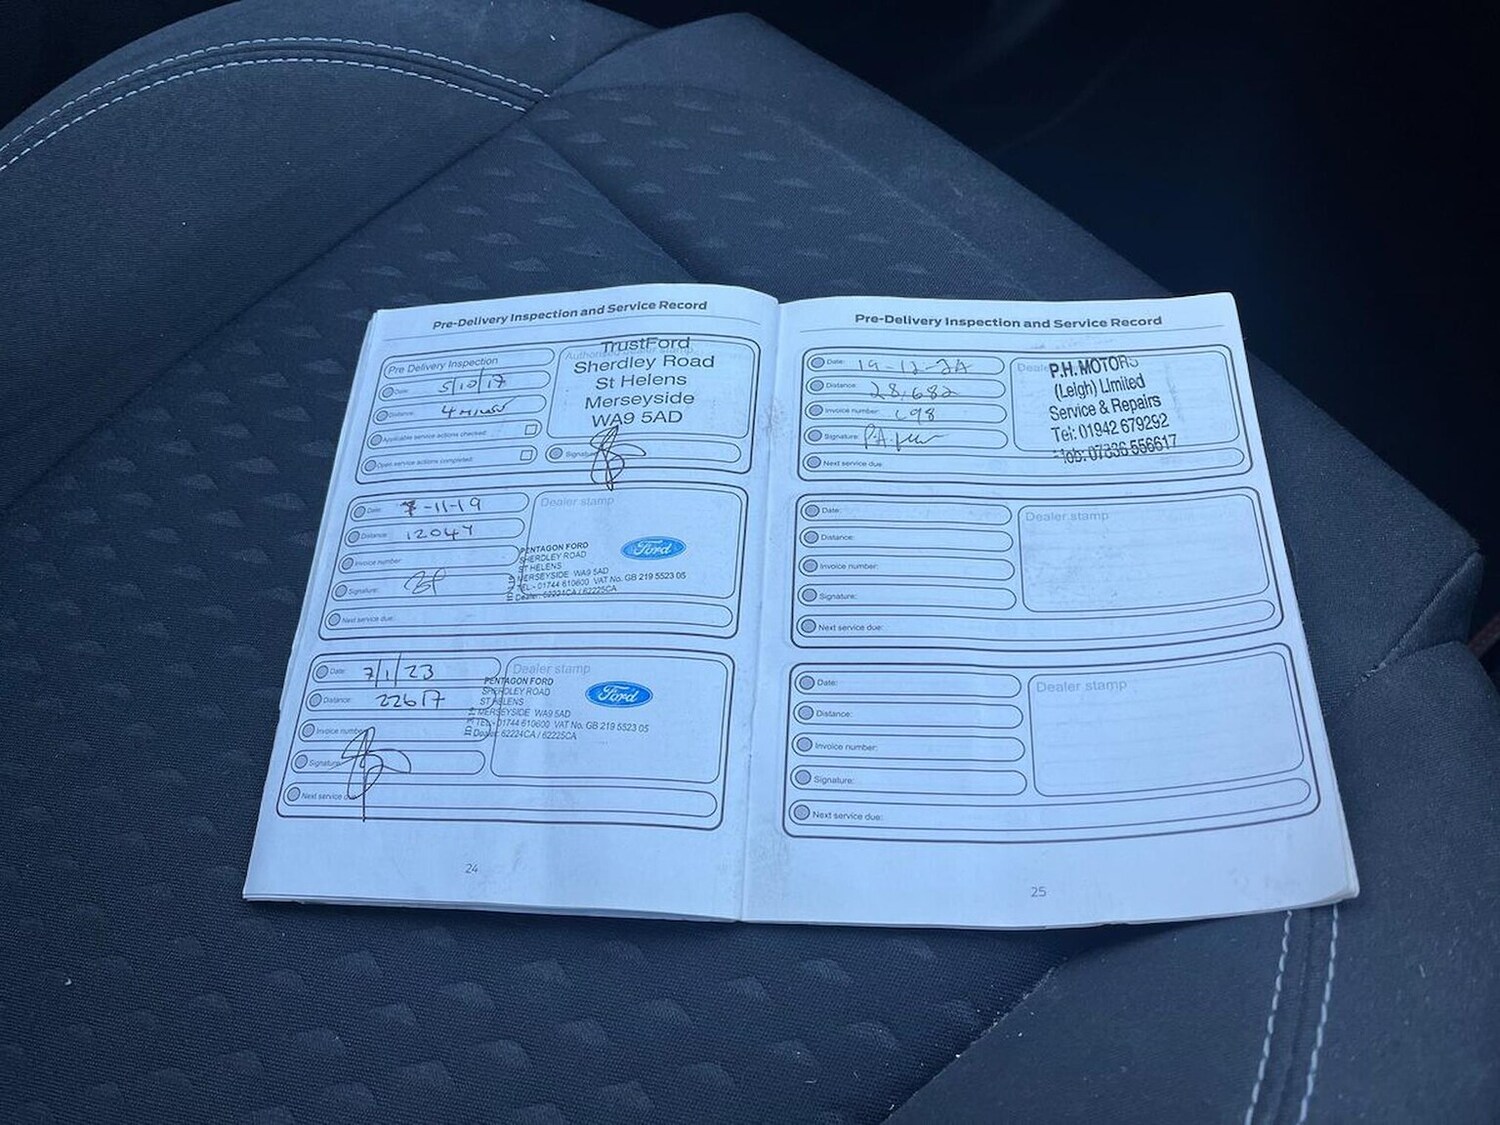 Pre-Delivery Inspection and Service Record
Pre Delivery Inspection
Date: 5/10/17
Distance: 4 miles
Applicable service actions checked:
Open service actions completed:
Authorised dealer stamp
TrustFord
Sherdley Road
St Helens
Merseyside
WA9 5AD
Signature
Date: 7-11-19
Distance: 12047
Invoice number:
Signature:
Next service due:
Dealer stamp
PENTAGON FORD
SHERDLEY ROAD
ST HELENS
MERSEYSIDE WA9 5AD
TEL - 01744 610600 VAT No. GB 219 5523 05
Dealer: 62224CA / 62225CA
Ford
Date: 7/1/23
Distance: 22617
Invoice number
Signature:
Next service due
Dealer stamp
PENTAGON FORD
SHERDLEY ROAD
ST HELENS
MERSEYSIDE WA9 5AD
TEL - 01744 610600 VAT No. GB 219 5523 05
Dealer: 62224CA / 62225CA
Ford
24
Pre-Delivery Inspection and Service Record
Date: 19-12-24
Distance: 28,682
Invoice number: 98
Signature:
Next service due:
Dealer
P.H. MOTORS
(Leigh) Limited
Service & Repairs
Tel: 01942 679292
Mob: 07836 556617
Date:
Distance:
Invoice number:
Signature:
Next service due:
Dealer stamp
Date:
Distance:
Invoice number:
Signature:
Next service due:
Dealer stamp
25